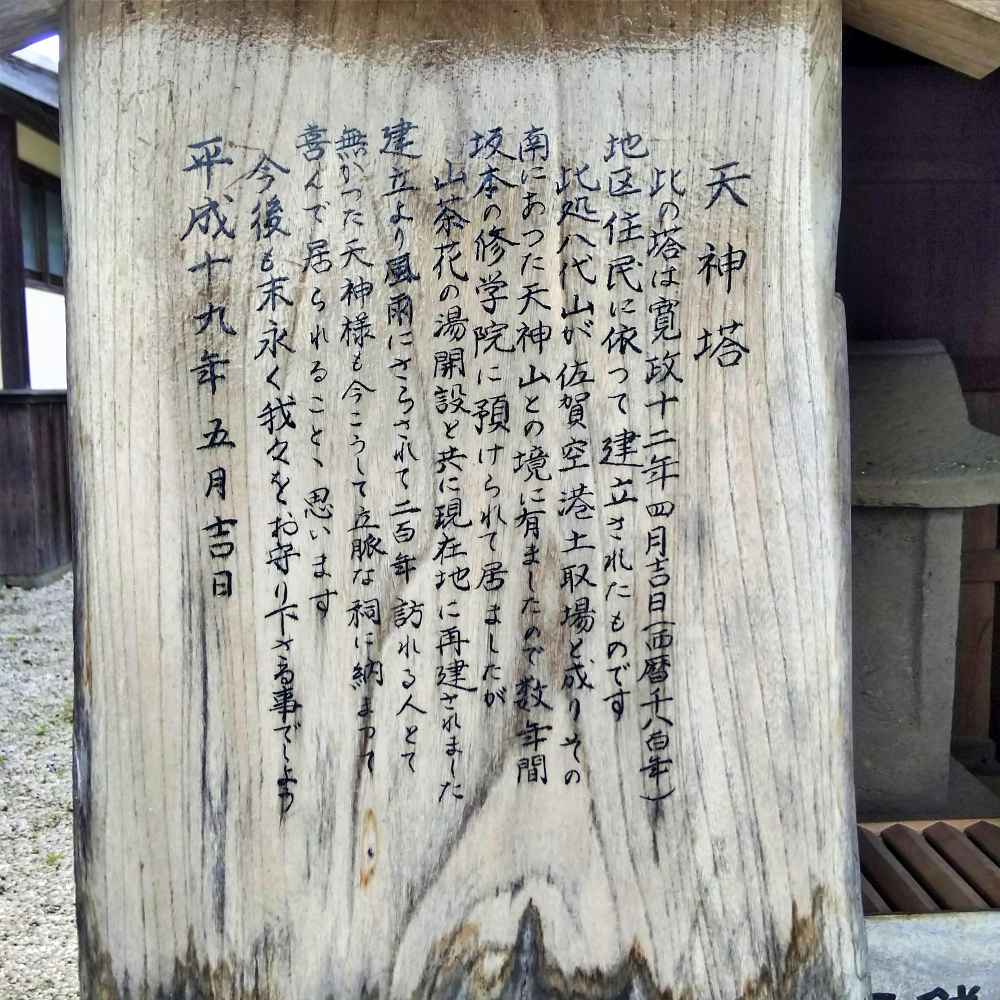 天神塔
此の塔は寛政十二年四月吉日(西暦千八百年)
地区住民に依って建立されたものです
此処八代山が佐賀空港土取場と成りその
南にあった天神山との境に有ましたので数年間
坂本の修学院に預けられて居ましたが
山茶花の湯開設と共に現在地に再建されました
建立より風雨にさらされて二百年訪れる人とて
無かった天神様も今こうして立脈な祠に納まって
喜んで居られること、思います
今後も末永く我々をお守り下さる事でしょう
平成十九年五月吉日